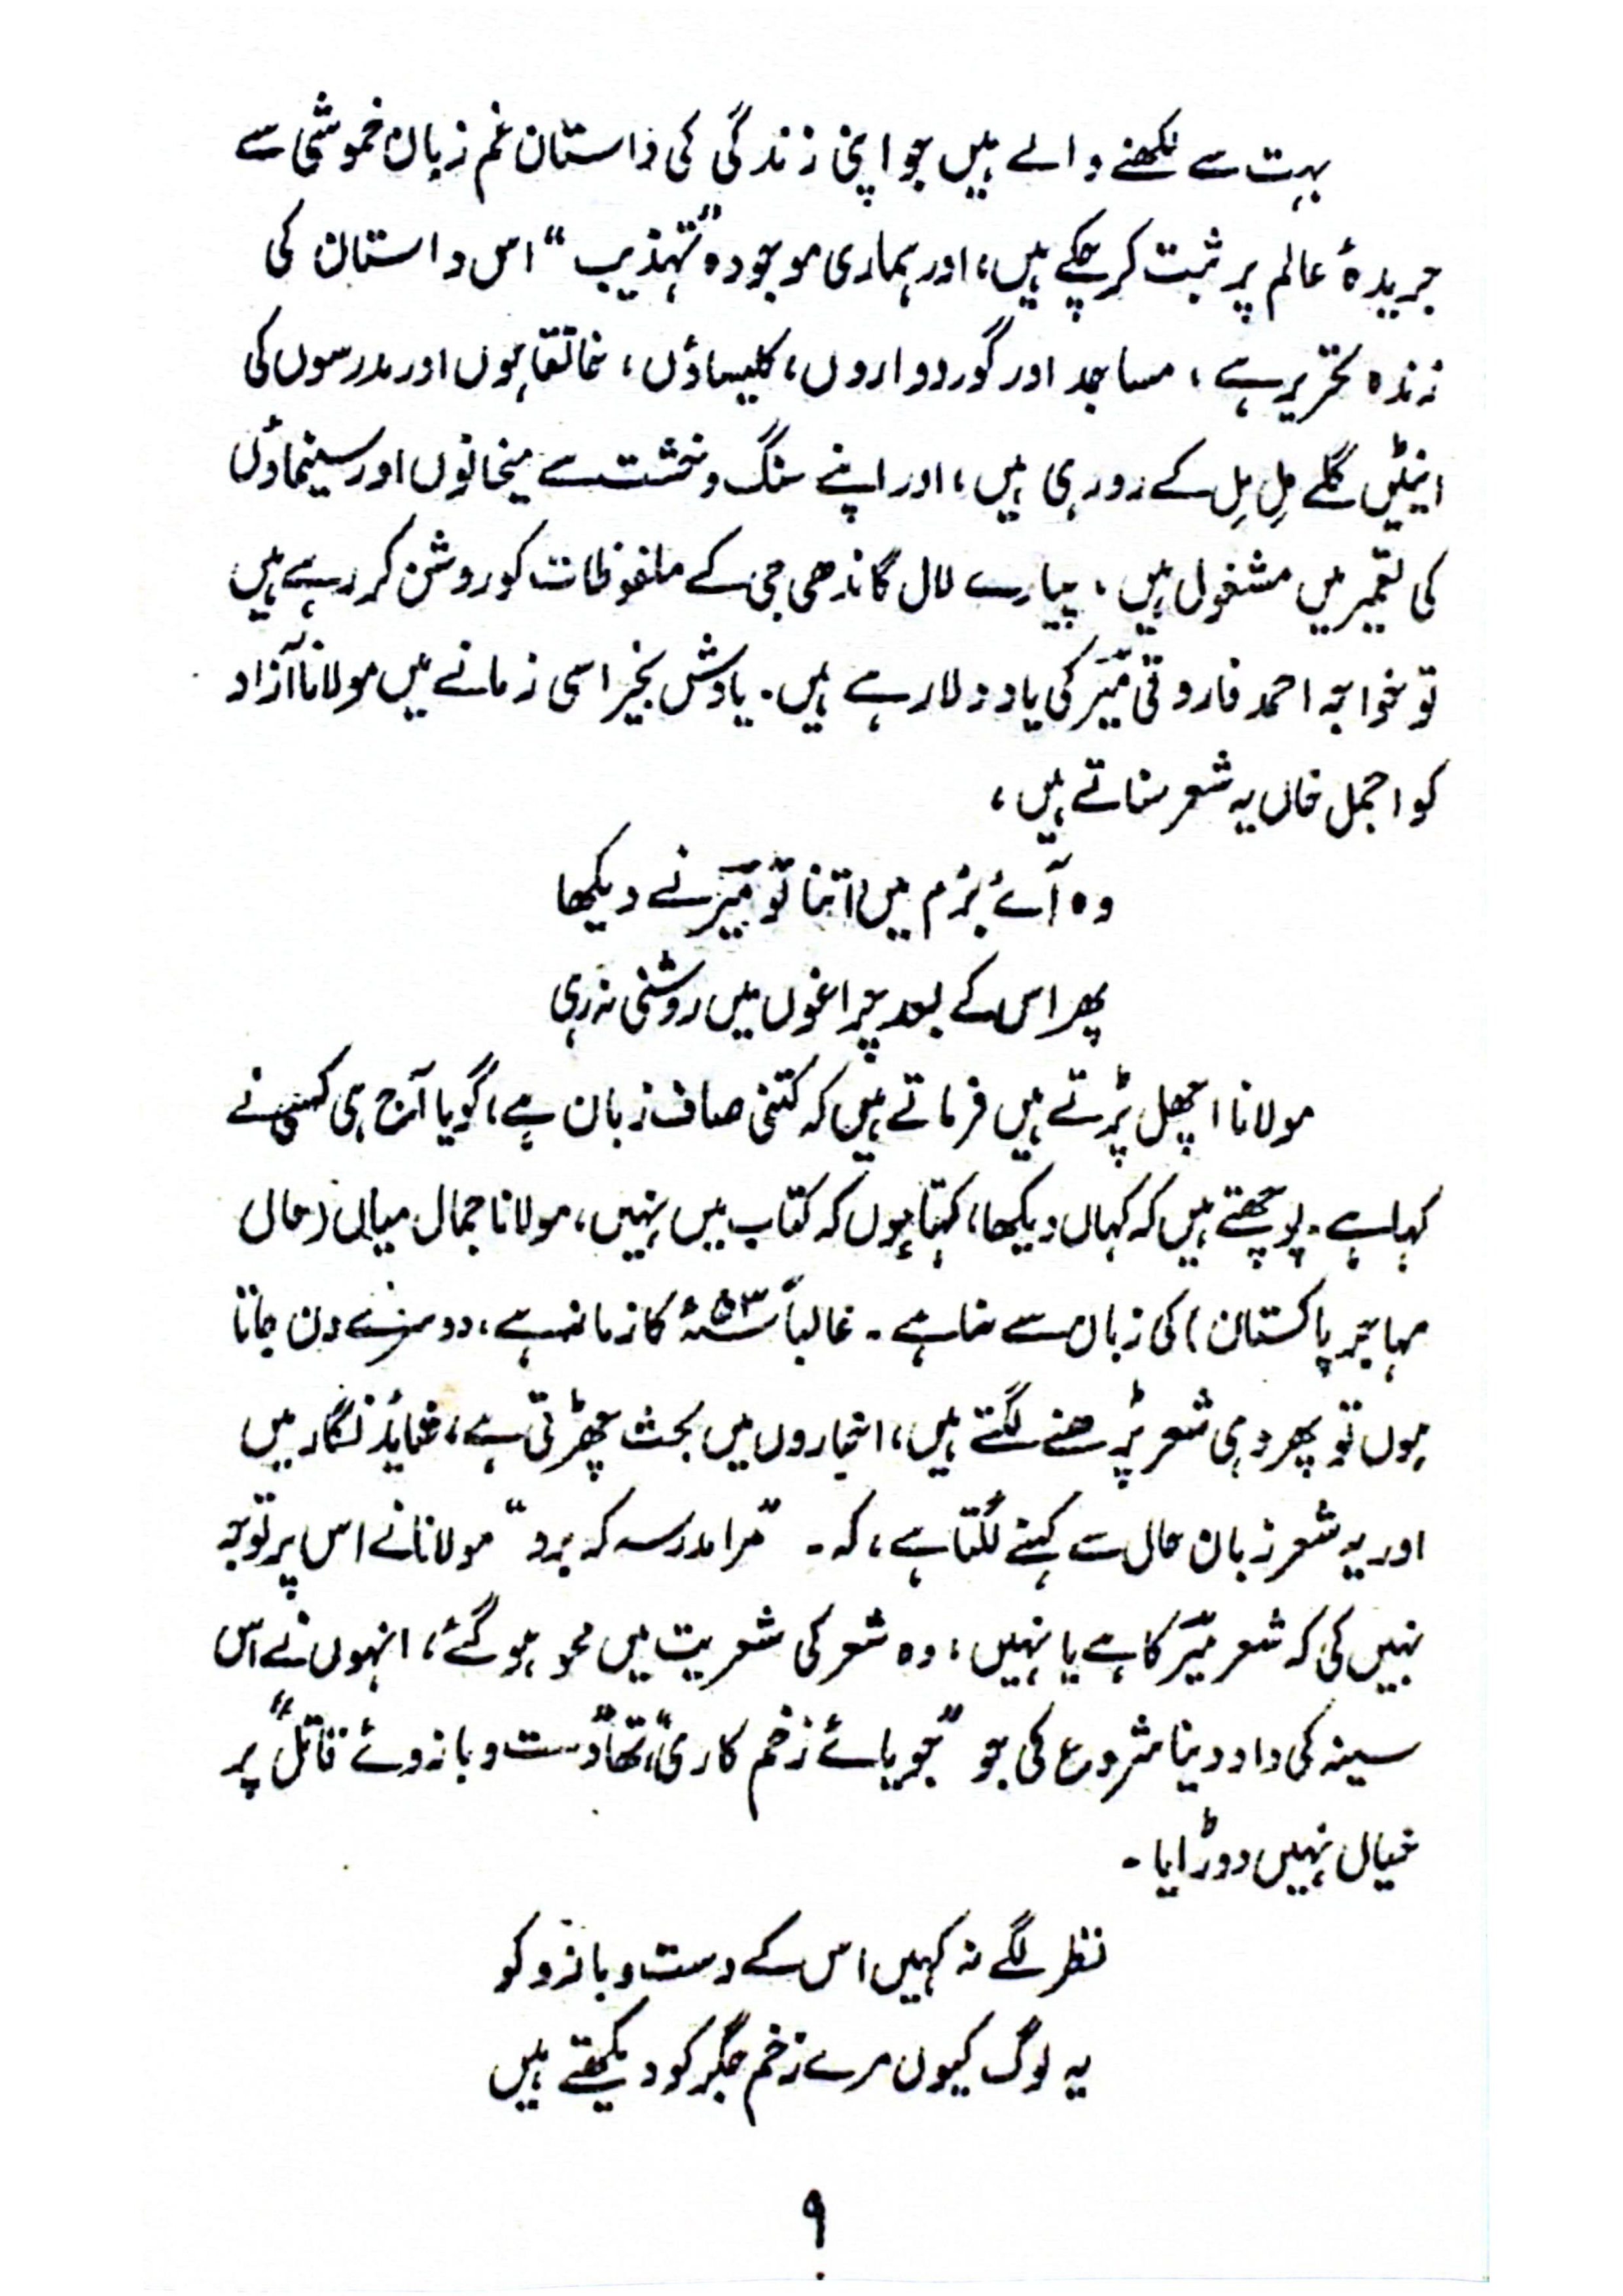 بہت سے لکھنے والے ہیں جو اپنی زندگی کی داستان غم زبان خموشی سے
جریدۂ عالم پر ثبت کر چکے ہیں، اور ہماری موجودہ "تہذیب" اس داستان کی
زندہ تحریر ہے، مساجد اور گوردواروں، کلیساؤں، خانقاہوں اور مدرسوں کی
اینٹیں گلے مِل مِل کے رو رہی ہیں، اور اپنے سنگ و خشت سے میخانوں اور سینماؤں
کی تعمیر میں مشغول ہیں، پیارے لال گاندھی جی کے ملفوظات کو روشن کر رہے ہیں
تو خواجہ احمد فاروقی میرؔ کی یاد دلا رہے ہیں۔ یادش بخیر اسی زمانے میں مولانا آزاد
کو اجمل خاں یہ شعر سناتے ہیں،
وہ آئے بزم میں اتنا تو میرؔ نے دیکھا
پھر اس کے بعد چراغوں میں روشنی نہ رہی
مولانا اچھل پڑتے ہیں فرماتے ہیں کہ کتنی صاف زبان ہے، گویا آج ہی کسی نے
کہا ہے۔ پوچھتے ہیں کہ کہاں دیکھا، کہتا ہوں کہ کتاب میں نہیں، مولانا جمال میاں (حال
مہاجر پاکستان) کی زبان سے سنا ہے۔ غالباً ۵۳ء کا زمانہ ہے، دوسرے دن جاتا
ہوں تو پھر وہی شعر پڑھنے لگتے ہیں، اخباروں میں بحث چھڑتی ہے، شاید نگار میں
اور یہ شعر زبان حال سے کہنے لگتا ہے، کہ۔ "مرا مدرسہ کہ برد" مولانا نے اس پر توجہ
نہیں کی کہ شعر میرؔ کا ہے یا نہیں، وہ شعر کی شعریت میں محو ہو گئے، انہوں نے اس
سینہ کی داد دینا شروع کی جو "جویائے زخم کاری" تھا "دست و بازوئے قاتل" پر
خیال نہیں دوڑایا۔
نظر لگے نہ کہیں اس کے دست و بازو کو
یہ لوگ کیوں مرے زخم جگر کو دیکھتے ہیں
۹